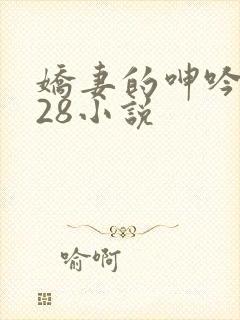 嬌妻的呻吟
28小說
喻啊